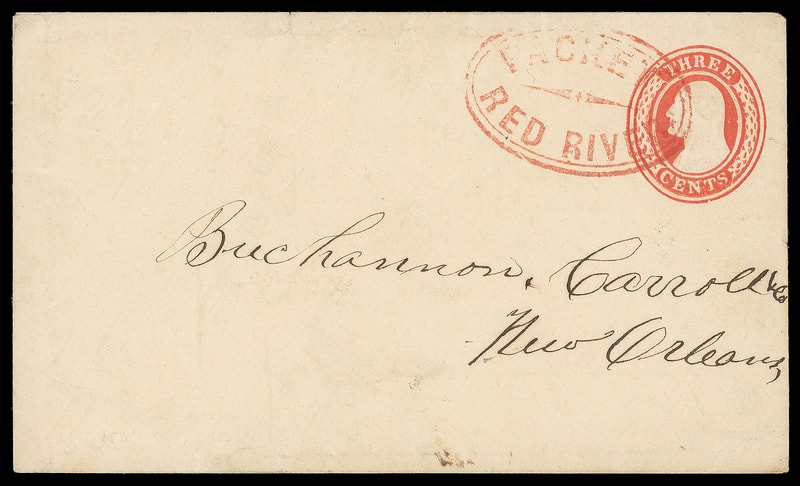 PACKET
RED RIVER
THREE
CENTS
Buchannon, Carroll & Co
New Orleans